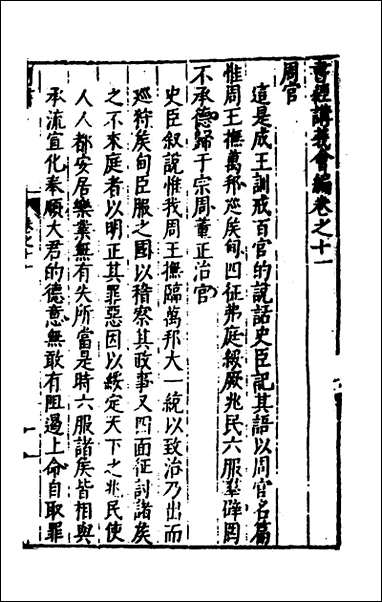 書經講義會編卷之十一
周官
這是成王訓戒百官的說話史臣記其語以周官名篇
惟周王撫萬邦巡矦甸四征弗庭綏厥兆民六服羣辟罔
不承德歸于宗周董正治官
史臣叙說惟我周王撫臨萬邦大一統以致治乃出而
巡狩矦甸臣服之國以稽察其政事又四面征討諸矦
之不来庭者以明正其罪惡因以綏定天下之兆民使
人人都安居樂業無有失所當是時六服諸矦皆相與
承流宣化奉順大君的德意無敢有阻遏上命自取罪